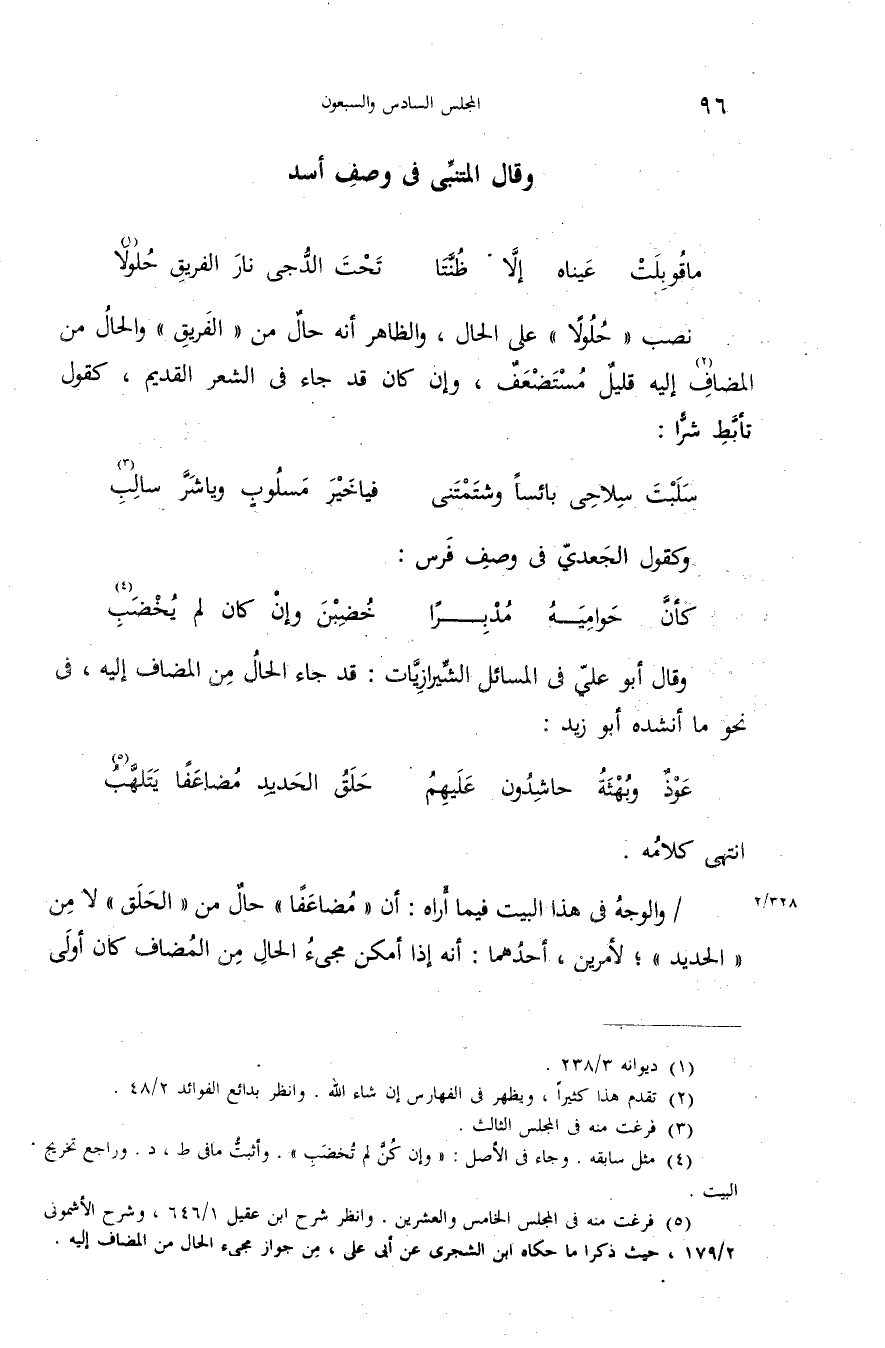 ٩٦ المجلس السادس والسبعون
وقال المتنبِّى فى وصفِ أسد
ماقُوبِلَتْ عَيناه إلَّا ظُنَّتَا تَحْتَ الدُّجى نارَ الفريقِ حُلُولًا (١)
نصب « حُلُولًا » على الحال ، والظاهر أنه حالٌ من « الفَريقِ » والحالُ من
المضافِ (٢) إليه قليلٌ مُسْتَضْعَفٌ ، وإن كان قد جاء فى الشعر القديم ، كقول
تأبَّطِ شرًّا :
سَلَبْتَ سِلاحِى بائساً وشَتَمْتَنى فياخَيْرَ مَسلُوبٍ وياشَرَّ سالِبِ (٣)
وكقول الجَعدىّ فى وصفِ فَرس :
كأنَّ حَوامِيَـــهُ مُدْبِـــــرًا خُضِبْنَ وإنْ كان لم يُخْضَبِ (٤)
وقال أبو علىّ فى المسائل الشِّيرازِيَّات : قد جاء الحالُ مِن المضاف إليه ، فى
نحو ما أنشده أبو زيد :
عَوْذٌ وبُهْثَةُ حاشِدُون عَلَيهِمُ حَلَقُ الحَديدِ مُضاعَفًا يَتَلهَّبُ (٥)
انتهى كلامُه .
٢/٣٢٨ / والوجهُ فى هذا البيت فيما أُراه : أن « مُضاعَفًا » حالٌ من « الحَلَق » لا مِن
« الحديد » ؛ لأمرين ، أحدُهما : أنه إذا أمكن مجىءُ الحالِ مِن المُضاف كان أولَى
(١) ديوانه ٢٣٨/٣ .
(٢) تقدم هذا كثيراً ، ويظهر فى الفهارس إن شاء الله . وانظر بدائع الفوائد ٤٨/٢ .
(٣) فرغت منه فى المجلس الثالث .
(٤) مثل سابقه . وجاء فى الأصل : « وإن كُنَّ لم تُخضَبِ » . وأثبتُّ مافى ط ، د . وراجع تخريج
البيت .
(٥) فرغت منه فى المجلس الخامس والعشرين . وانظر شرح ابن عقيل ٦٤٦/١ ، وشرح الأشمونى
١٧٩/٢ ، حيث ذكرا ما حكاه ابن الشجرى عن أبى على ، مِن جواز مجىء الحال من المضاف إليه .